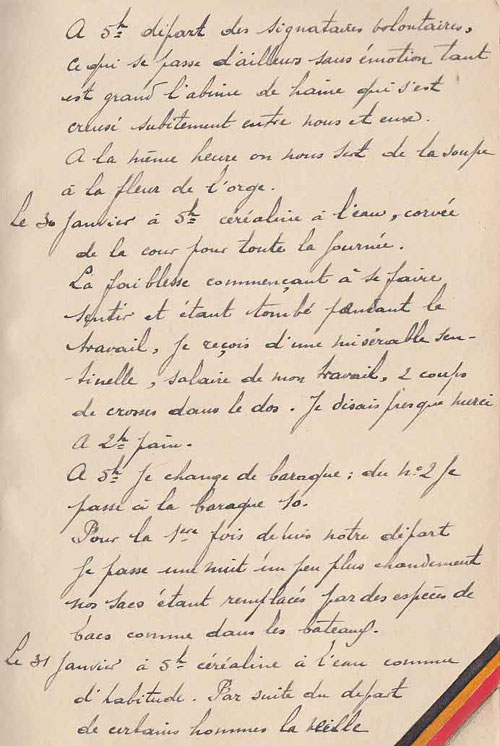 A 5h départ des signataires volontaires,
ce qui se passe d'ailleurs sans émotion tant
est grand l'abîme de haine qui s'est
creusé subitement entre nous et eux.
A la même heure on nous sert de la soupe
à la fleur de l'orge.
Le 30 Janvier à 5h céréaline à l'eau, corvée
de la cour pour toute la journée.
La faiblesse commençant à se faire
sentir et étant tombé pendant le
travail, je reçois d'une misérable sen-
tinelle, salaire de mon travail, 2 coups
de crosses dans le dos. Je disais presque merci
A 2h pain.
A 5h Je change de baraque; du no 2 Je
passe à la baraque 10.
Pour la 1ère fois depuis notre départ
Je passe une nuit un peu plus chaudement
nos sacs étant remplacés par des espèces de
bacs comme dans les bateaux.
Le 31 Janvier à 5h céréaline à l'eau comme
d'habitude. Par suite du départ
de certains hommes la veille